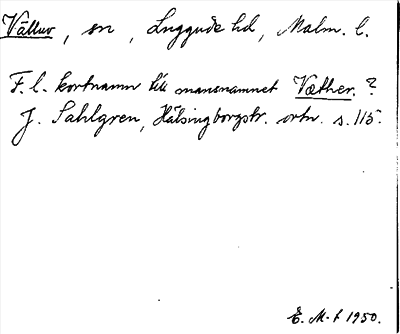 Välluv, sn, Luggude hd, Malm. l.
F. l. kortnamn till mansnamnet Væther.?
J. Sahlgren, Hälsingborgstr. ortn. s. 115.
E. M-t 1950.